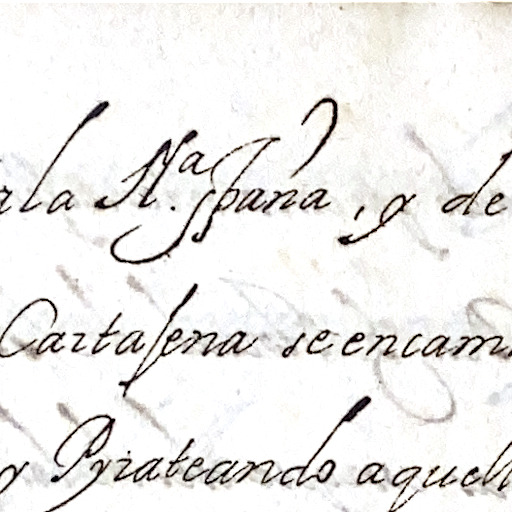 la N.ª España, y de
Cartagena se encam
y Pyrateando aquell